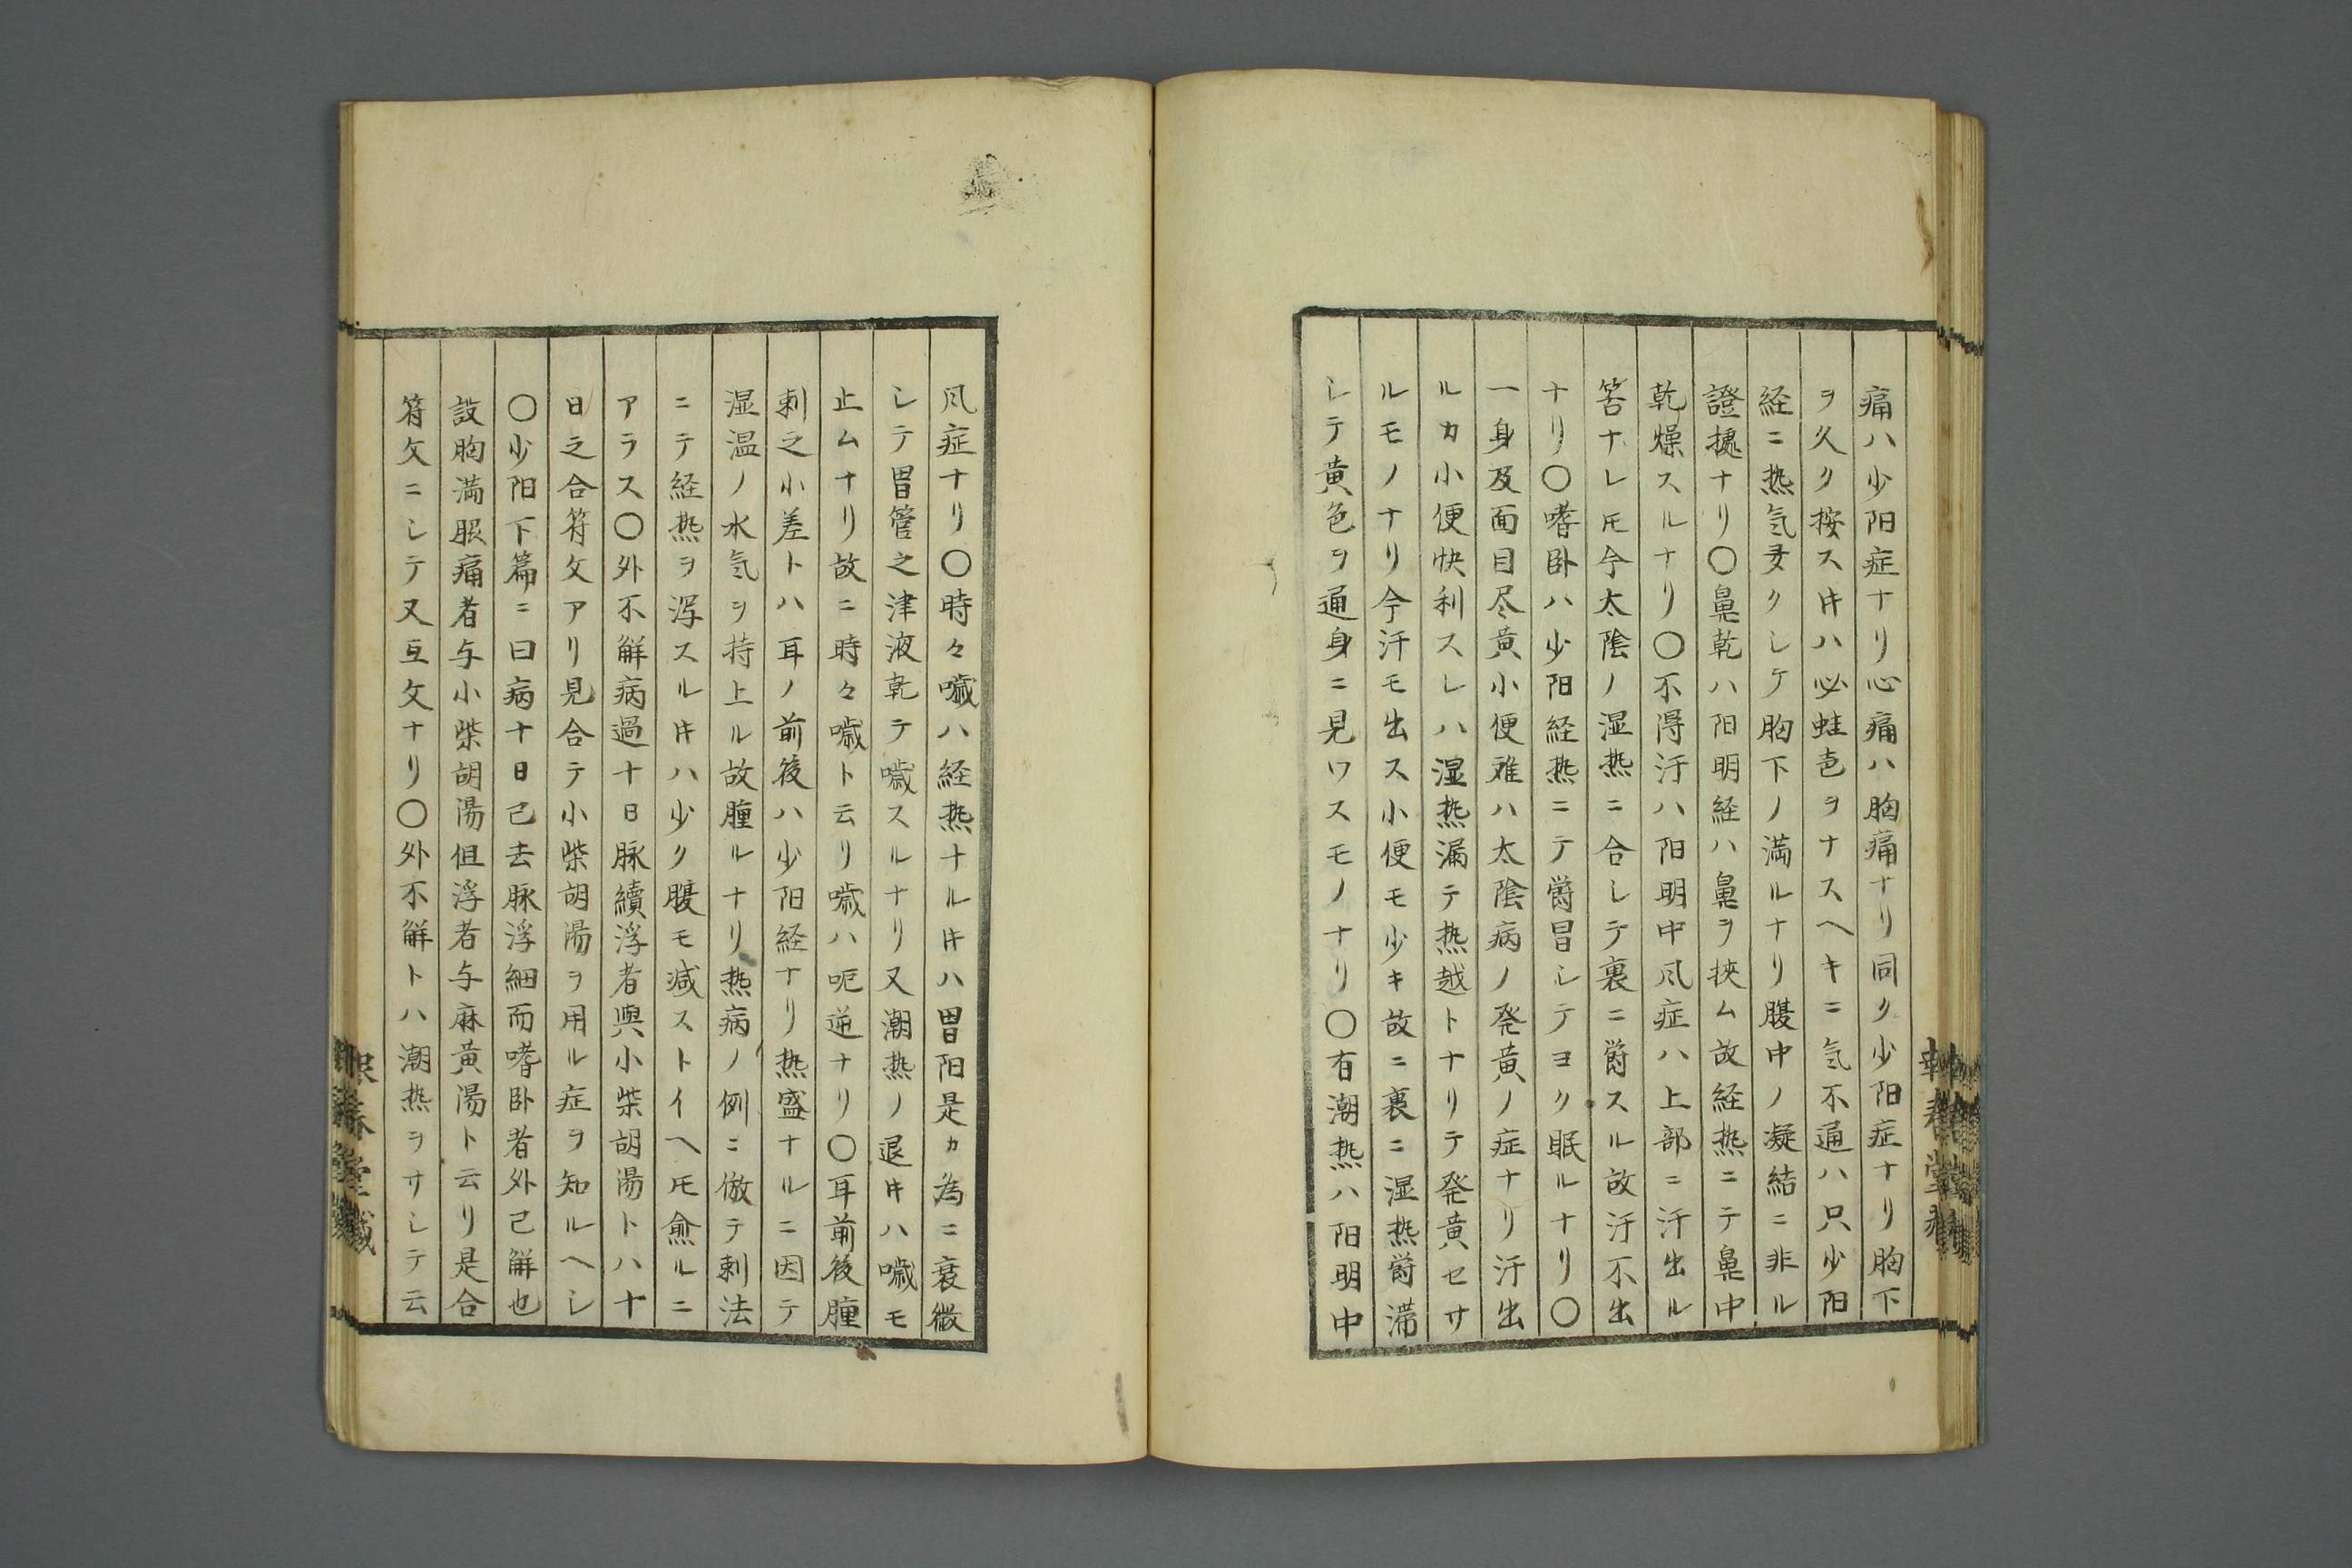 痛ハ少阳症ナリ心痛ハ胸痛ナリ同ク少阳症ナリ胸下
ヲ久ク按スㇵ必蛙皀ヲナスヘキニ気不通ハ只少阳
経ニ热気叐クシテ胸下ノ満ルナリ腹中ノ凝結ニ非ル
證拠ナリ〇鼻乾ハ阳明経ハ鼻ヲ挾ム故経热ニテ鼻中
乾燥スルナリ〇不得汗ハ阳明中风症ハ上部ニ汗出ル
筈ナレ𪜈今太陰ノ湿热ニ合シテ裏ニ欝スル故汗不出
ナリ〇嗜卧ハ少阳経热ニテ欝冒シテヨク眠ルナリ〇
一身及面目尽黄小便难ハ太陰病ノ発黄ノ症ナリ汗出
ルカ小便快利スレハ湿热漏テ热越トナリテ発黄セサ
ルモノナリ今汗モ出ス小便モ少キ故ニ裏ニ湿热欝滞
シテ黄色ヲ通身ニ見ワスモノナリ〇有潮热ハ阳明中
风症ナリ〇時々噦ハ経热ナル𪜈ハ胃阳是カ為ニ衰微
シテ胃管之津液乾テ噦スルナリ又潮热ノ退𪜈ハ噦モ
止ムナリ故ニ時々噦ト云リ噦ハ呃逆ナリ〇耳前後腫
刺之小差トハ耳ノ前後ハ少阳経ナリ热盛ナルニ因テ
湿温ノ水気ヲ持上ル故腫ルナリ热病ノ例ニ倣テ刺法
ニテ経热ヲ泻スル𪜈ハ少ク腹モ减ストイヘ𪜈愈ルニ
アラス〇外不解病過十日脉續浮者與小柴胡湯トハ十
日之合符文アリ見合テ小柴胡湯ヲ用ル症ヲ知ルヘシ
〇少阳下篇ニ曰病十日已去脉浮細而嗜卧者外已解也
設胸満脹痛者与小柴胡湯但浮者与麻黄湯ト云リ是合
符文ニシテ又互文ナリ〇外不解トハ潮热ヲサシテ云